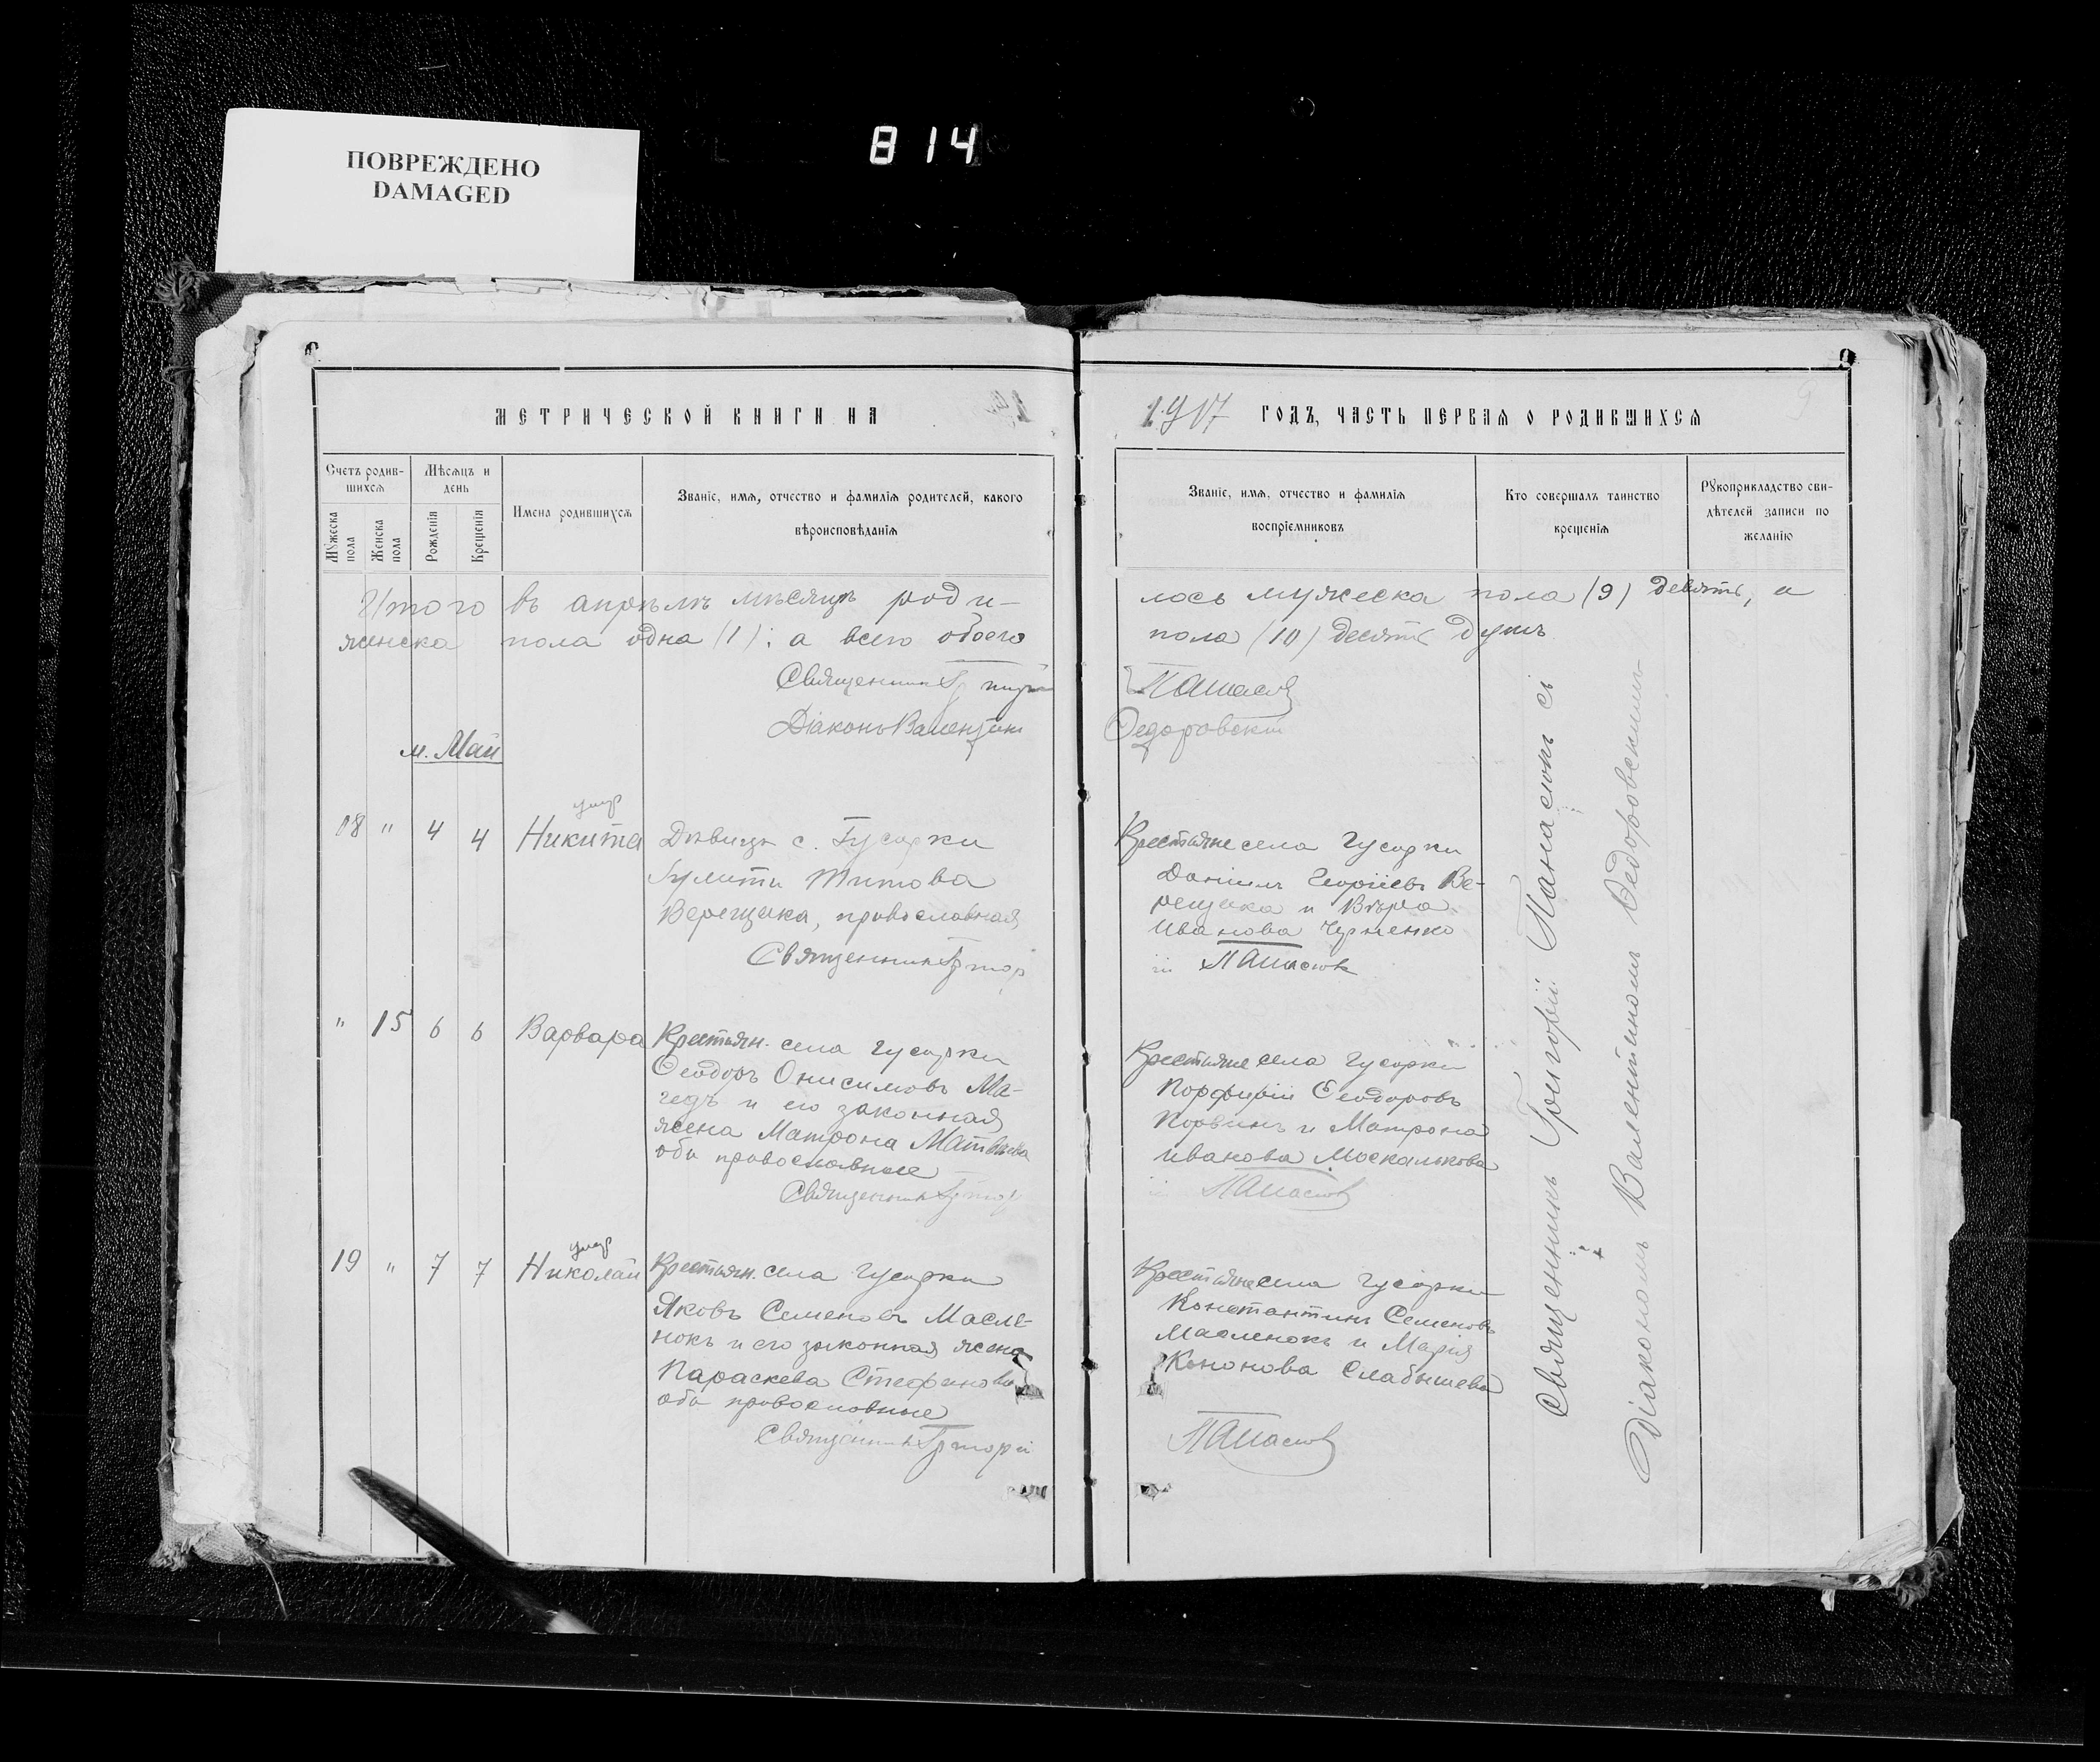 ПОВРЕЖДЕНО
DAMAGED
814
МЕТРИЧЕСКОЙ КНИГИ НА
1917 ГОДЪ, ЧАСТЬ ПЕРВАЯ О РОДИВШИХСЯ
9
Счетъ родив-
шихся
Мѣсяцъ и
день
Мужеска
пола
Женска
пола
Рожденія
Крещенія
Имена родившихся
Званіе, имя, отчество и фамилія родителей, какого
вѣроисповѣданія
Званіе, имя, отчество и фамилія
воспріемниковъ
Кто совершалъ таинство
крещенія
Рукоприкладство сви-
дѣтелей записи по
желанію
Итого въ апрѣлѣ мѣсяцѣ роди-
лось мужеска пола (9) девять, а
женска пола одна (1); а всего обоего
пола (10) десять душъ
Священникъ Панасюк
Діаконъ Валентинъ Федоровскій
м. Май
18 " 4 4
умер
Никита
Дѣвица с. Гусарки
Титова
Верещака, православная
Священникъ
Крестьяне села Гусарки
Даніилъ Георгіевъ Ве-
рещака и Вѣра
Иванова
Панасюк
" 15 6 6
Варвара
Крестьян. села Гусарки
Феодоръ Онисимовъ Ма-
и его законная
жена Матрона Матвѣева
оба православные
Священникъ
Крестьяне села Гусарки
Порфирій Феодоровъ
и Матрона
Иванова Москалькова
Панасюк
19 " 7 7
умер
Николай
Крестьян. села Гусарки
Яковъ Семеновъ Масле-
нокъ и его законная жена
Параскева Стефанова
оба православные
Священникъ Григорій
Крестьяне села Гусарки
Константинъ Семеновъ
Масленокъ и Марія
Кононова Слабышева
Панасюк
Священникъ Григорій Панасюкъ съ
Діакономъ Валентиномъ Федоровскимъ